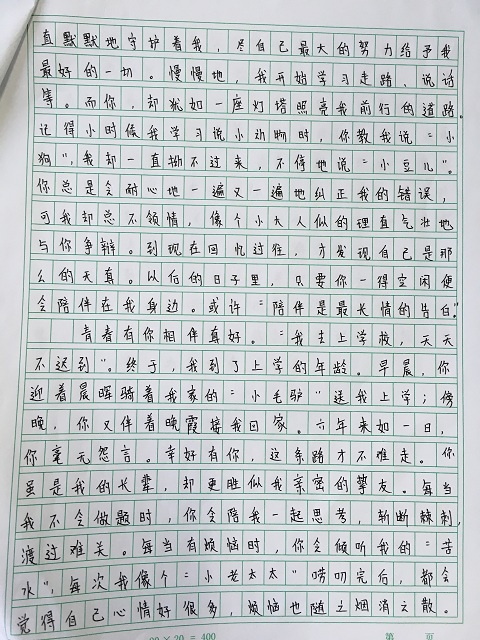 直默默地守护着我，尽自己最大的努力给予我
最好的一切。慢慢地，我开始学习走路、说话
等。而你，却犹如一座灯塔照亮我前行的道路。
记得小时候我学习说小动物时，你教我说“小
狗”，我却一直拗不过来，不停地说“小豆儿”。
你总是会耐心地一遍又一遍地纠正我的错误，
可我却总不领情，像个小大人似的理直气壮地
与你争辩。到现在回忆过往，方发现自己是那
么的天真。以后的日子里，只要你一得空闲便
会陪伴在我身边。或许“陪伴是最长情的告白”。
青春有你相伴真好。“我去上学校，天天
不迟到”。终于，我到了上学的年龄。早晨，你
迎着晨晖骑着我家的“小毛驴”送我上学；傍
晚，你又伴着晚霞接我回家。六年来如一日，
你毫无怨言。幸好有你，这条路才不难走。你
虽是我的长辈，却更胜似我亲密的挚友。每当
我不会做题时，你会陪我一起思考，斩断棘刺，
渡过难关。每当有烦恼时，你会倾听我的“苦
水”，每次我像个“小老太太”唠叨完后，都会
觉得自己心情好很多，烦恼也随之烟消云散。
20 × 20 = 400 第 页